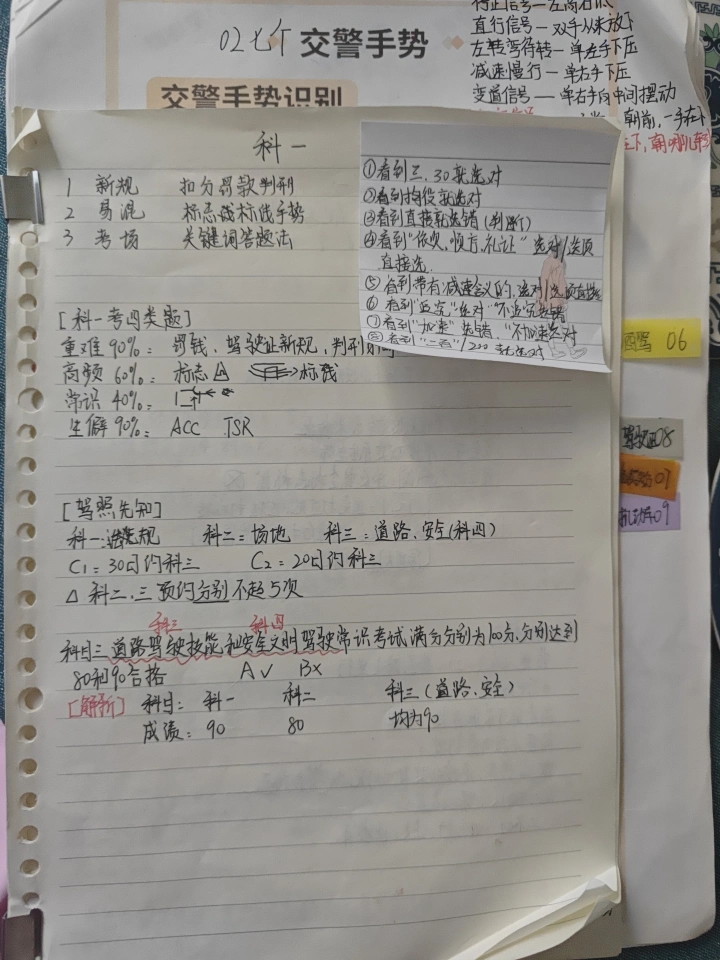 02 七个 交警手势
交警手势识别
直行信号—双手从来放下
左转弯待转—单左手下压
减速慢行—单右手下压
变道信号—单右手向中间摆动
朝前,一手在下
科一
1 新规 扣分罚款判刑
2 易混 标志线标线手势
3 考场 关键词答题法
①看到三、30就选对
②看到拘役就选对
③看到直接就选错(判断)
④看到"依次,顺序,礼让"选对/选项
直接选.
⑤看到带有减速含义的,选对/选项直接选
⑥看到"追究"选对"不追究选错
⑦看到"加速"选错,"不加速选对
⑧看到"二百"/200就选对
[科一考四类题]
重难90%: 罚钱、驾驶证新规、判刑
高频60%: 标志 标线
常识40%:
生僻90%: ACC TSR
[驾照先知]
科一:法规 科二=场地 科三:道路、安全(科四)
C1=30日约科三 C2=20日约科三
△ 科二、三预约分别不超5次
科三 科四
科目三道路驾驶技能和安全文明驾驶常识考试满分分别为100分,分别达到
80和90合格 A√ B×
[解析] 科目: 科一 科二 科三(道路、安全)
成绩: 90 80 均为90
酒驾 06
驾驶证08
07
09